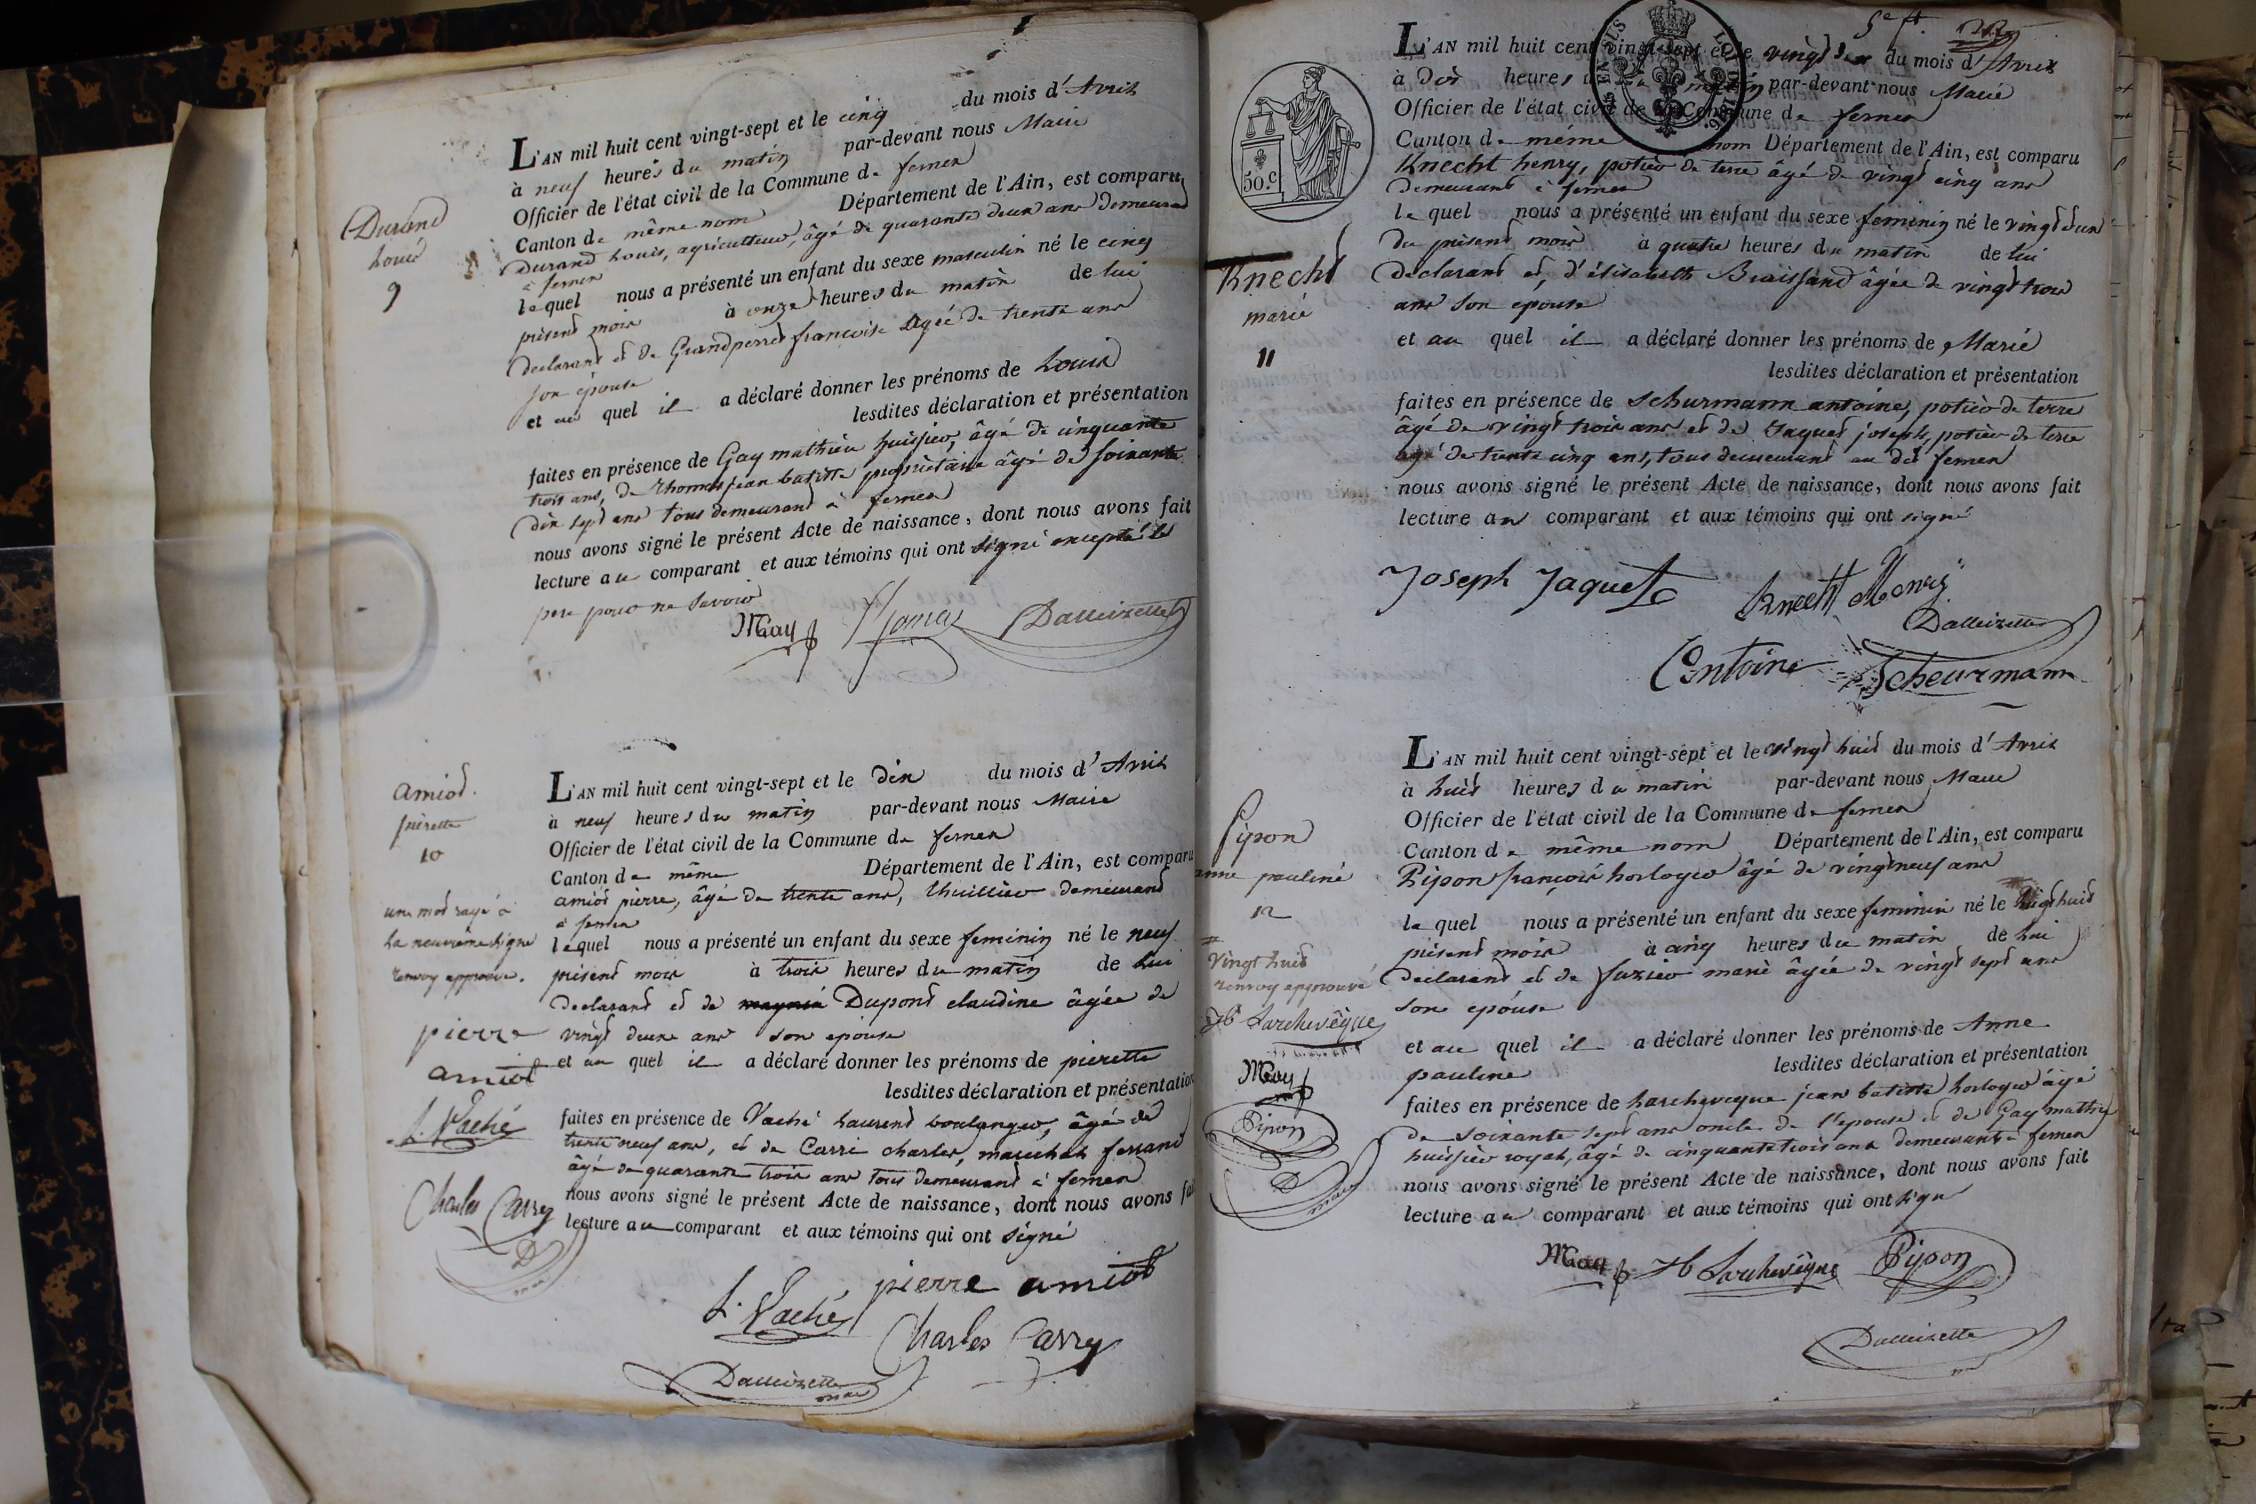 Durand
Louis
9
L'AN mil huit cent vingt-sept et le cinq du mois d'Avril
à neuf heures du matin par-devant nous Maire
Officier de l'état civil de la Commune de fernex
Canton de même nom Département de l'Ain, est comparu
Durand Louis, agriculteur, âgé de quarante deux ans demeurant
à fernex
lequel nous a présenté un enfant du sexe masculin né le cinq
présent mois à onze heures du matin de lui
déclarant et de Grandperret francoise âgée de trente ans
son épouse
et au quel il a déclaré donner les prénoms de Louis
lesdites déclaration et présentation
faites en présence de Gay mathieu huissier, âgé de cinquante
trois ans, de Thomas jean batiste propriétaire âgé de soixante
dix sept ans tous demeurant à fernex
nous avons signé le présent Acte de naissance, dont nous avons fait
lecture au comparant et aux témoins qui ont signé excepté le
pere pour ne savoir
MGay Dalleizette
amiot
pierette
10
un mot rayé à
la neuvième ligne
renvoy approuvé.
pierre
amiot
L. Vaché
Charles Carry
D
L'AN mil huit cent vingt-sept et le dix du mois d'Avril
à neuf heures du matin par-devant nous Maire
Officier de l'état civil de la Commune de fernex
Canton de même Département de l'Ain, est comparu
amiot pierre, âgé de trente ans, thuillier demeurant
à fernex
lequel nous a présenté un enfant du sexe feminin né le neuf
présent mois à trois heures du matin de lui
déclarant et de Dupont claudine âgée de
vingt deux ans son epouse
et au quel il a déclaré donner les prénoms de pierette
lesdites déclaration et présentation
faites en présence de Vaché Laurent boulanger, âgé de
trente neuf ans, et de Carri charles, marechal ferrant
âgé de quarante trois ans tous demeurant à fernex
nous avons signé le présent Acte de naissance, dont nous avons fai
lecture au comparant et aux témoins qui ont signé
L. Vaché pierre amiot
Charles Carry
Dalleizette
maire
50.c
Knecht
marie
11
L'AN mil huit cent vingt-sept et le vingt deux du mois d'Avril
à dix heures du matin par-devant nous Maire
Officier de l'état civil de la Commune de fernex
Canton de même nom Département de l'Ain, est comparu
Knecht henry, potier de terre âgé de vingt cinq ans
demeurant à fernex
lequel nous a présenté un enfant du sexe feminin né le vingt d'un
du présent mois à quatre heures du matin de lui
déclarant et d'élisabeth Braissand âgée de vingt trois
ans son epouse
et au quel il a déclaré donner les prénoms de Marie
lesdites déclaration et présentation
faites en présence de Schurmann antoine, potier de terre
âgé de vingt trois ans et de Jaquet joseph, potier de terre
âgé de trente cinq ans, tous demeurant au dit fernex
nous avons signé le présent Acte de naissance, dont nous avons fait
lecture au comparant et aux témoins qui ont signé
Joseph Jaquet Knecht Henry
Dalleizette
Antoine Scheurmann
Pipon
anne pauline
12
vingt huit
renvoy approuvé
JB Larchevêque
MGay
Pipon
D
L'AN mil huit cent vingt-sept et le vingt huit du mois d'Avril
à huit heures du matin par-devant nous Maire
Officier de l'état civil de la Commune de fernex
Canton de même nom Département de l'Ain, est comparu
Pipon françois horloger âgé de vingt neuf ans
lequel nous a présenté un enfant du sexe feminin né le vingt huit
présent mois à cinq heures du matin de lui
déclarant et de fuzier marie âgée de vingt sept ans
son epouse
et au quel il a déclaré donner les prénoms de Anne
pauline lesdites déclaration et présentation
faites en présence de Larcheveque jean batiste horloger âgé
de soixante sept ans oncle de l'epouse et de Gay mathieu
huissier royal, âgé de cinquante trois ans demeurant à fernex
nous avons signé le présent Acte de naissance, dont nous avons fait
lecture au comparant et aux témoins qui ont signé
MGay JB Larchevêque Pipon
Dalleizette